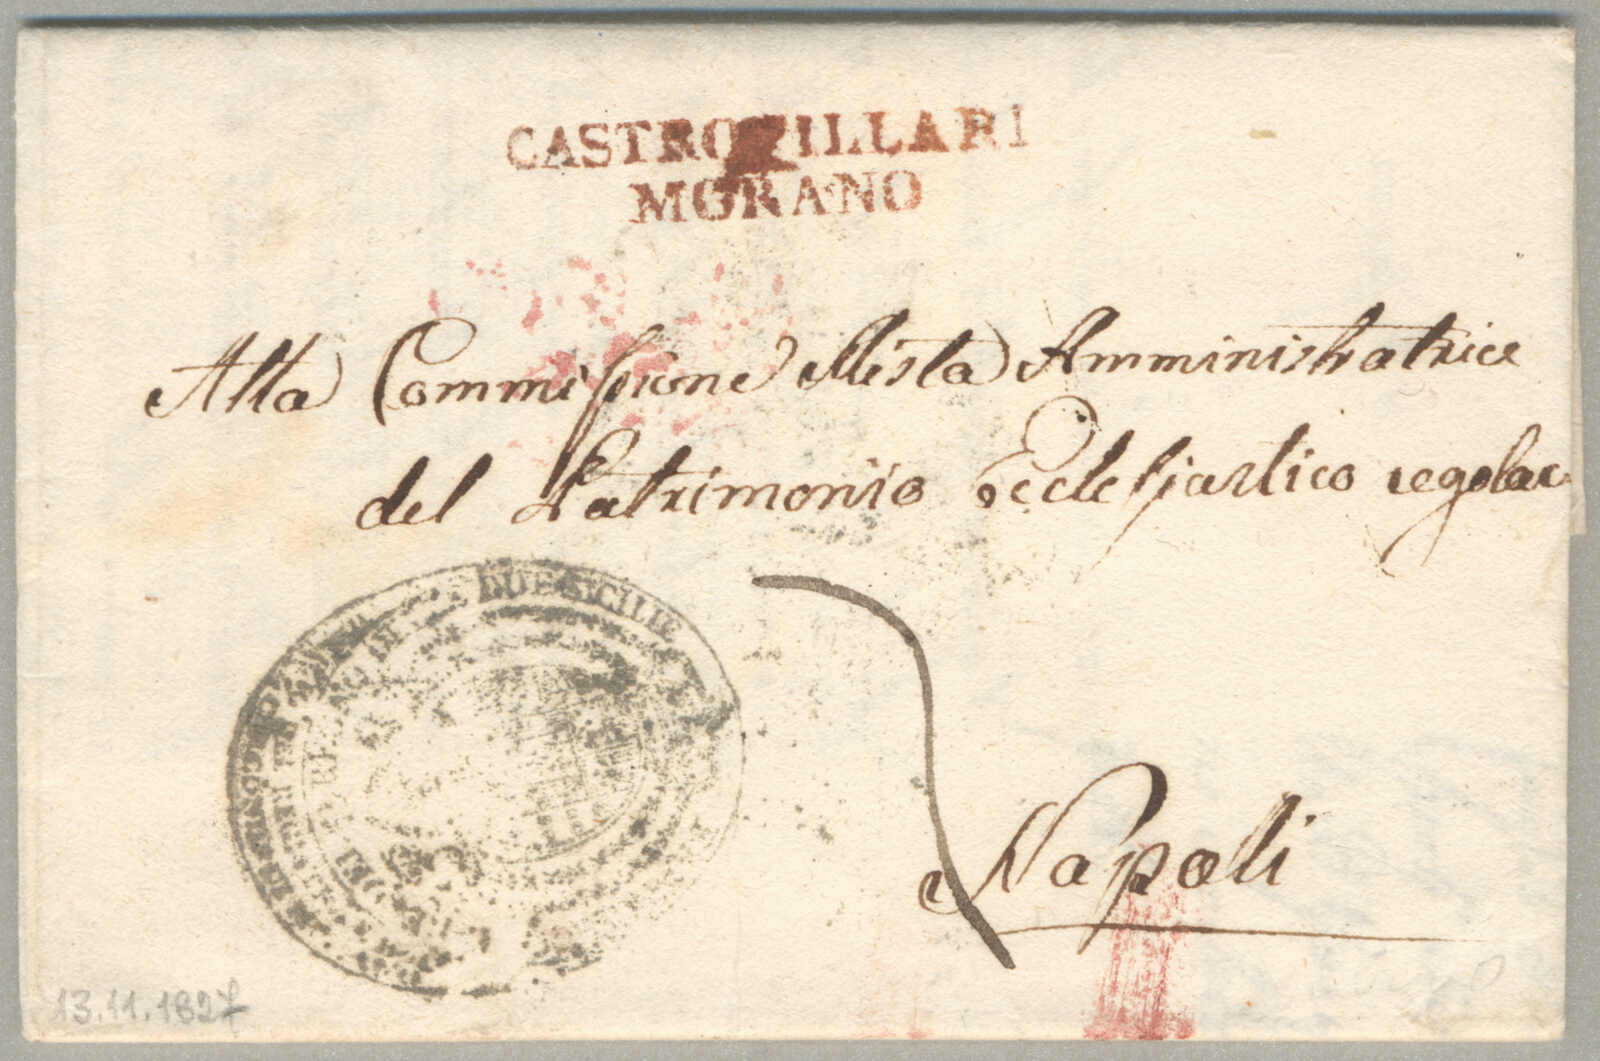 CASTROVILLARI
MORANO
Alla Commissione Mista Amministratrice
del Patrimonio Ecclesiastico regolare
DUE SICILIE
Napoli
13.11.1827